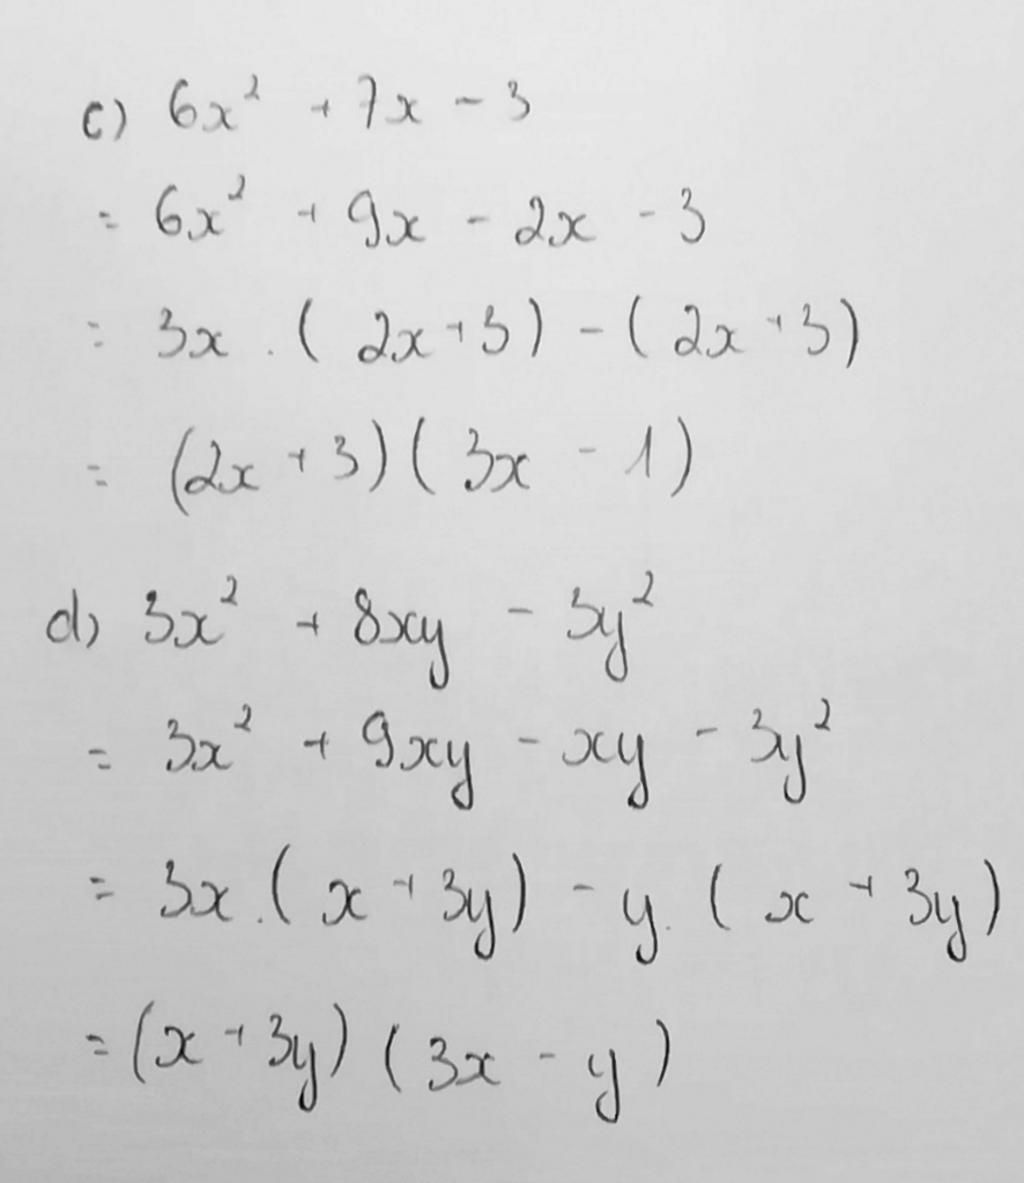 c) 6x² + 7x - 3
= 6x² + 9x - 2x - 3
= 3x . ( 2x + 3 ) - ( 2x + 3 )
= (2x + 3) ( 3x - 1 )
d) 3x² + 8xy - 3y²
= 3x² + 9xy - xy - 3y²
= 3x . ( x + 3y ) - y . ( x + 3y )
= (x + 3y) ( 3x - y )